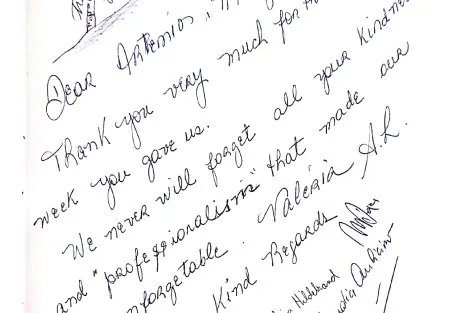 Dear Artemios,
Thank you very much for
week you gave us.
We never will forget all your kindnes
and "professionalism" that made our
nforgettable. Valéria A.L.
Kind Regards
Hildebrand